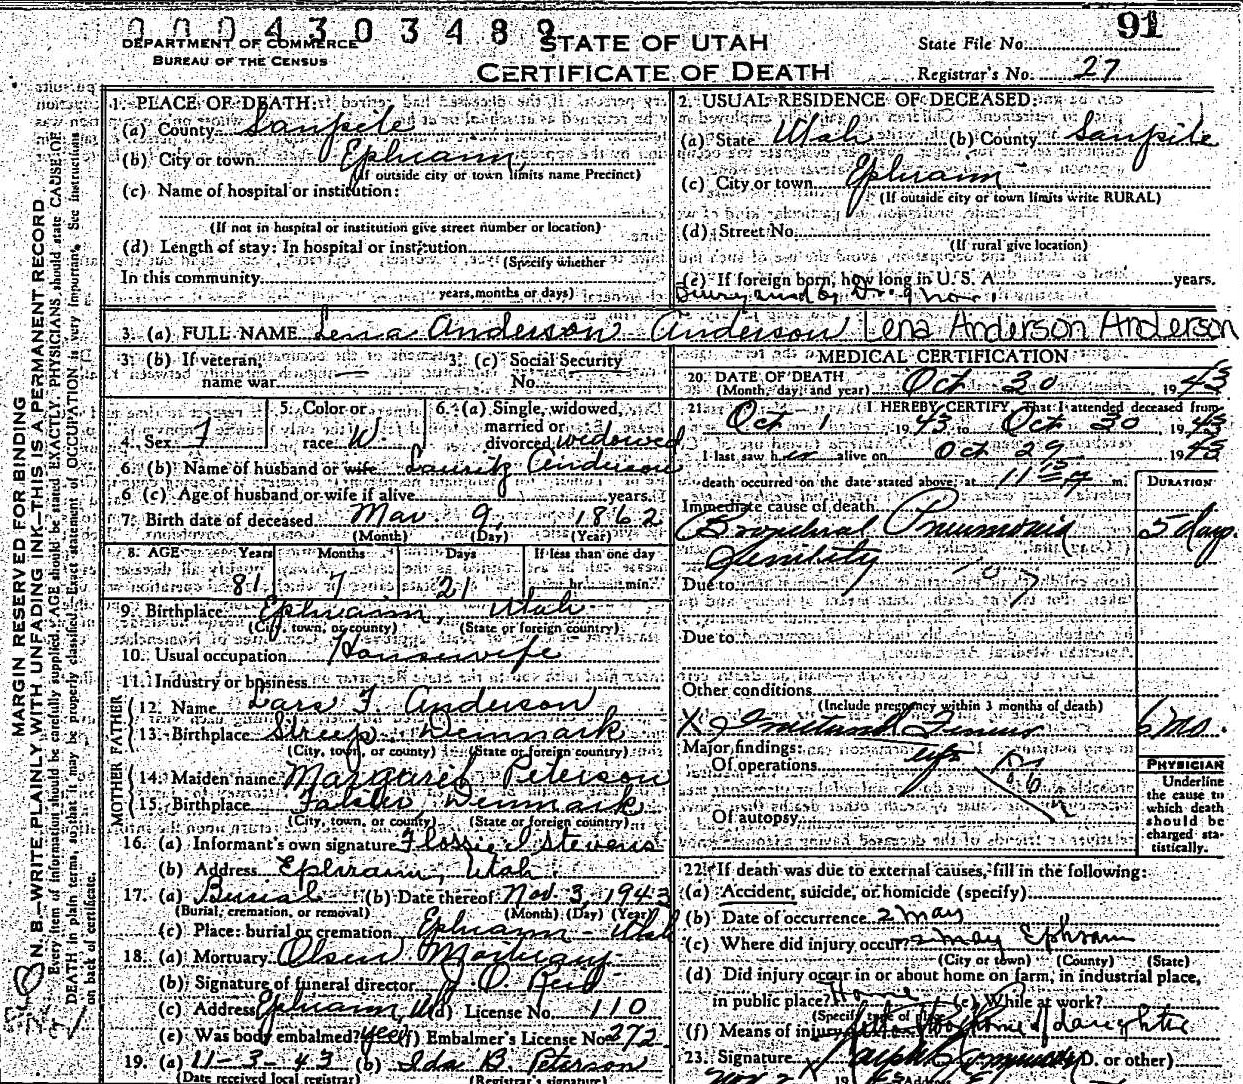 0004303489
DEPARTMENT OF COMMERCE
BUREAU OF THE CENSUS
STATE OF UTAH
CERTIFICATE OF DEATH
State File No. 91
Registrar's No. 27
MARGIN RESERVED FOR BINDING
N. B.—WRITE PLAINLY WITH UNFADING INK—THIS IS A PERMANENT RECORD
Every item of information should be carefully supplied. AGE should be stated EXACTLY. PHYSICIANS should state CAUSE OF
DEATH in plain terms, so that it may be properly classified. Exact statement of OCCUPATION is very important. See instructions
on back of certificate.
1. PLACE OF DEATH:
(a) County Sanpete
(b) City or town Ephraim
(If outside city or town limits name Precinct)
(c) Name of hospital or institution:
(If not in hospital or institution give street number or location)
(d) Length of stay: In hospital or institution
(Specify whether
In this community
years, months or days)
2. USUAL RESIDENCE OF DECEASED:
(a) State Utah (b) County Sanpete
(c) City or town Ephraim
(If outside city or town limits write RURAL)
(d) Street No.
(If rural give location)
(e) If foreign born, how long in U. S. A. years.
3. (a) FULL NAME Lena Anderson Anderson Lena Anderson Anderson
3. (b) If veteran, name war — 3. (c) Social Security No.
4. Sex F
5. Color or race W.
6. (a) Single, widowed, married or divorced widowed
6. (b) Name of husband or wife Lauritz Anderson
6 (c) Age of husband or wife if alive years.
7. Birth date of deceased Mar. 9, 1862
(Month) (Day) (Year)
8. AGE Years Months Days If less than one day
81 7 21 hr. min.
9. Birthplace Ephraim, Utah
(City, town, or county) (State or foreign country)
10. Usual occupation Housewife
11. Industry or business
FATHER
12. Name Lars F. Anderson
13. Birthplace Denmark
(City, town, or county) (State or foreign country)
MOTHER
14. Maiden name Margaret Peterson
15. Birthplace Falster Denmark
(City, town, or county) (State or foreign country)
16. (a) Informant's own signature Flossie Stevens
(b) Address Ephraim, Utah
17. (a) Burial (b) Date thereof Nov. 3, 1943
(Burial, cremation, or removal) (Month) (Day) (Year)
(c) Place: burial or cremation Ephraim - Utah
18. (a) Mortuary Olsen Mortuary
(b) Signature of funeral director J. O. Reid
(c) Address Ephraim, U (d) License No. 110
(e) Was body embalmed? yes (f) Embalmer's License No. 272
19. (a) 11-3-43 (b) Ida B. Peterson
(Date received local registrar) (Registrar's signature)
MEDICAL CERTIFICATION
20. DATE OF DEATH Oct 30 1943
(Month, day, and year)
21. I HEREBY CERTIFY, That I attended deceased from
Oct 1 1943 to Oct 30, 1943
I last saw her alive on Oct 29 1943
death occurred on the date stated above, at 11 15 m.
DURATION
Immediate cause of death
Pneumonia 5 days.
Senility
Due to
Due to
Other conditions
(Include pregnancy within 3 months of death)
6 mo.
Major findings:
Of operations
Of autopsy
PHYSICIAN
Underline
the cause to
which death
should be
charged sta-
tistically.
22. If death was due to external causes, fill in the following:
(a) Accident, suicide, or homicide (specify)
(b) Date of occurrence 2 may
(c) Where did injury occur 2 may Ephraim
(City or town) (County) (State)
(d) Did injury occur in or about home on farm, in industrial place,
in public place? Home (e) While at work?
(Specify type of place)
(f) Means of injury home of daughter
23. Signature Ralph D. or other)